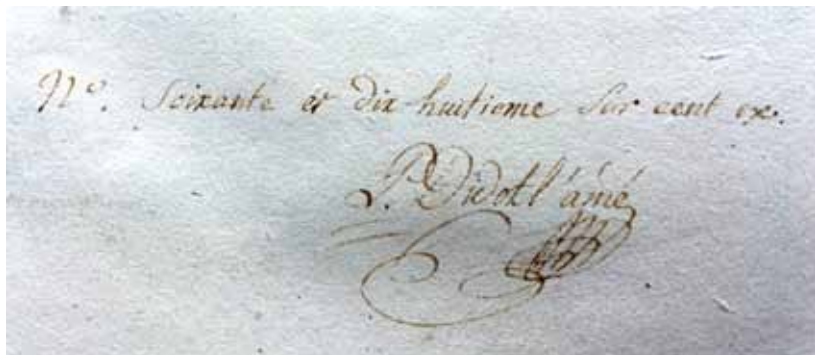 N.º Soixante et dix huitieme sur cent ex.
P. Didot l'ainé